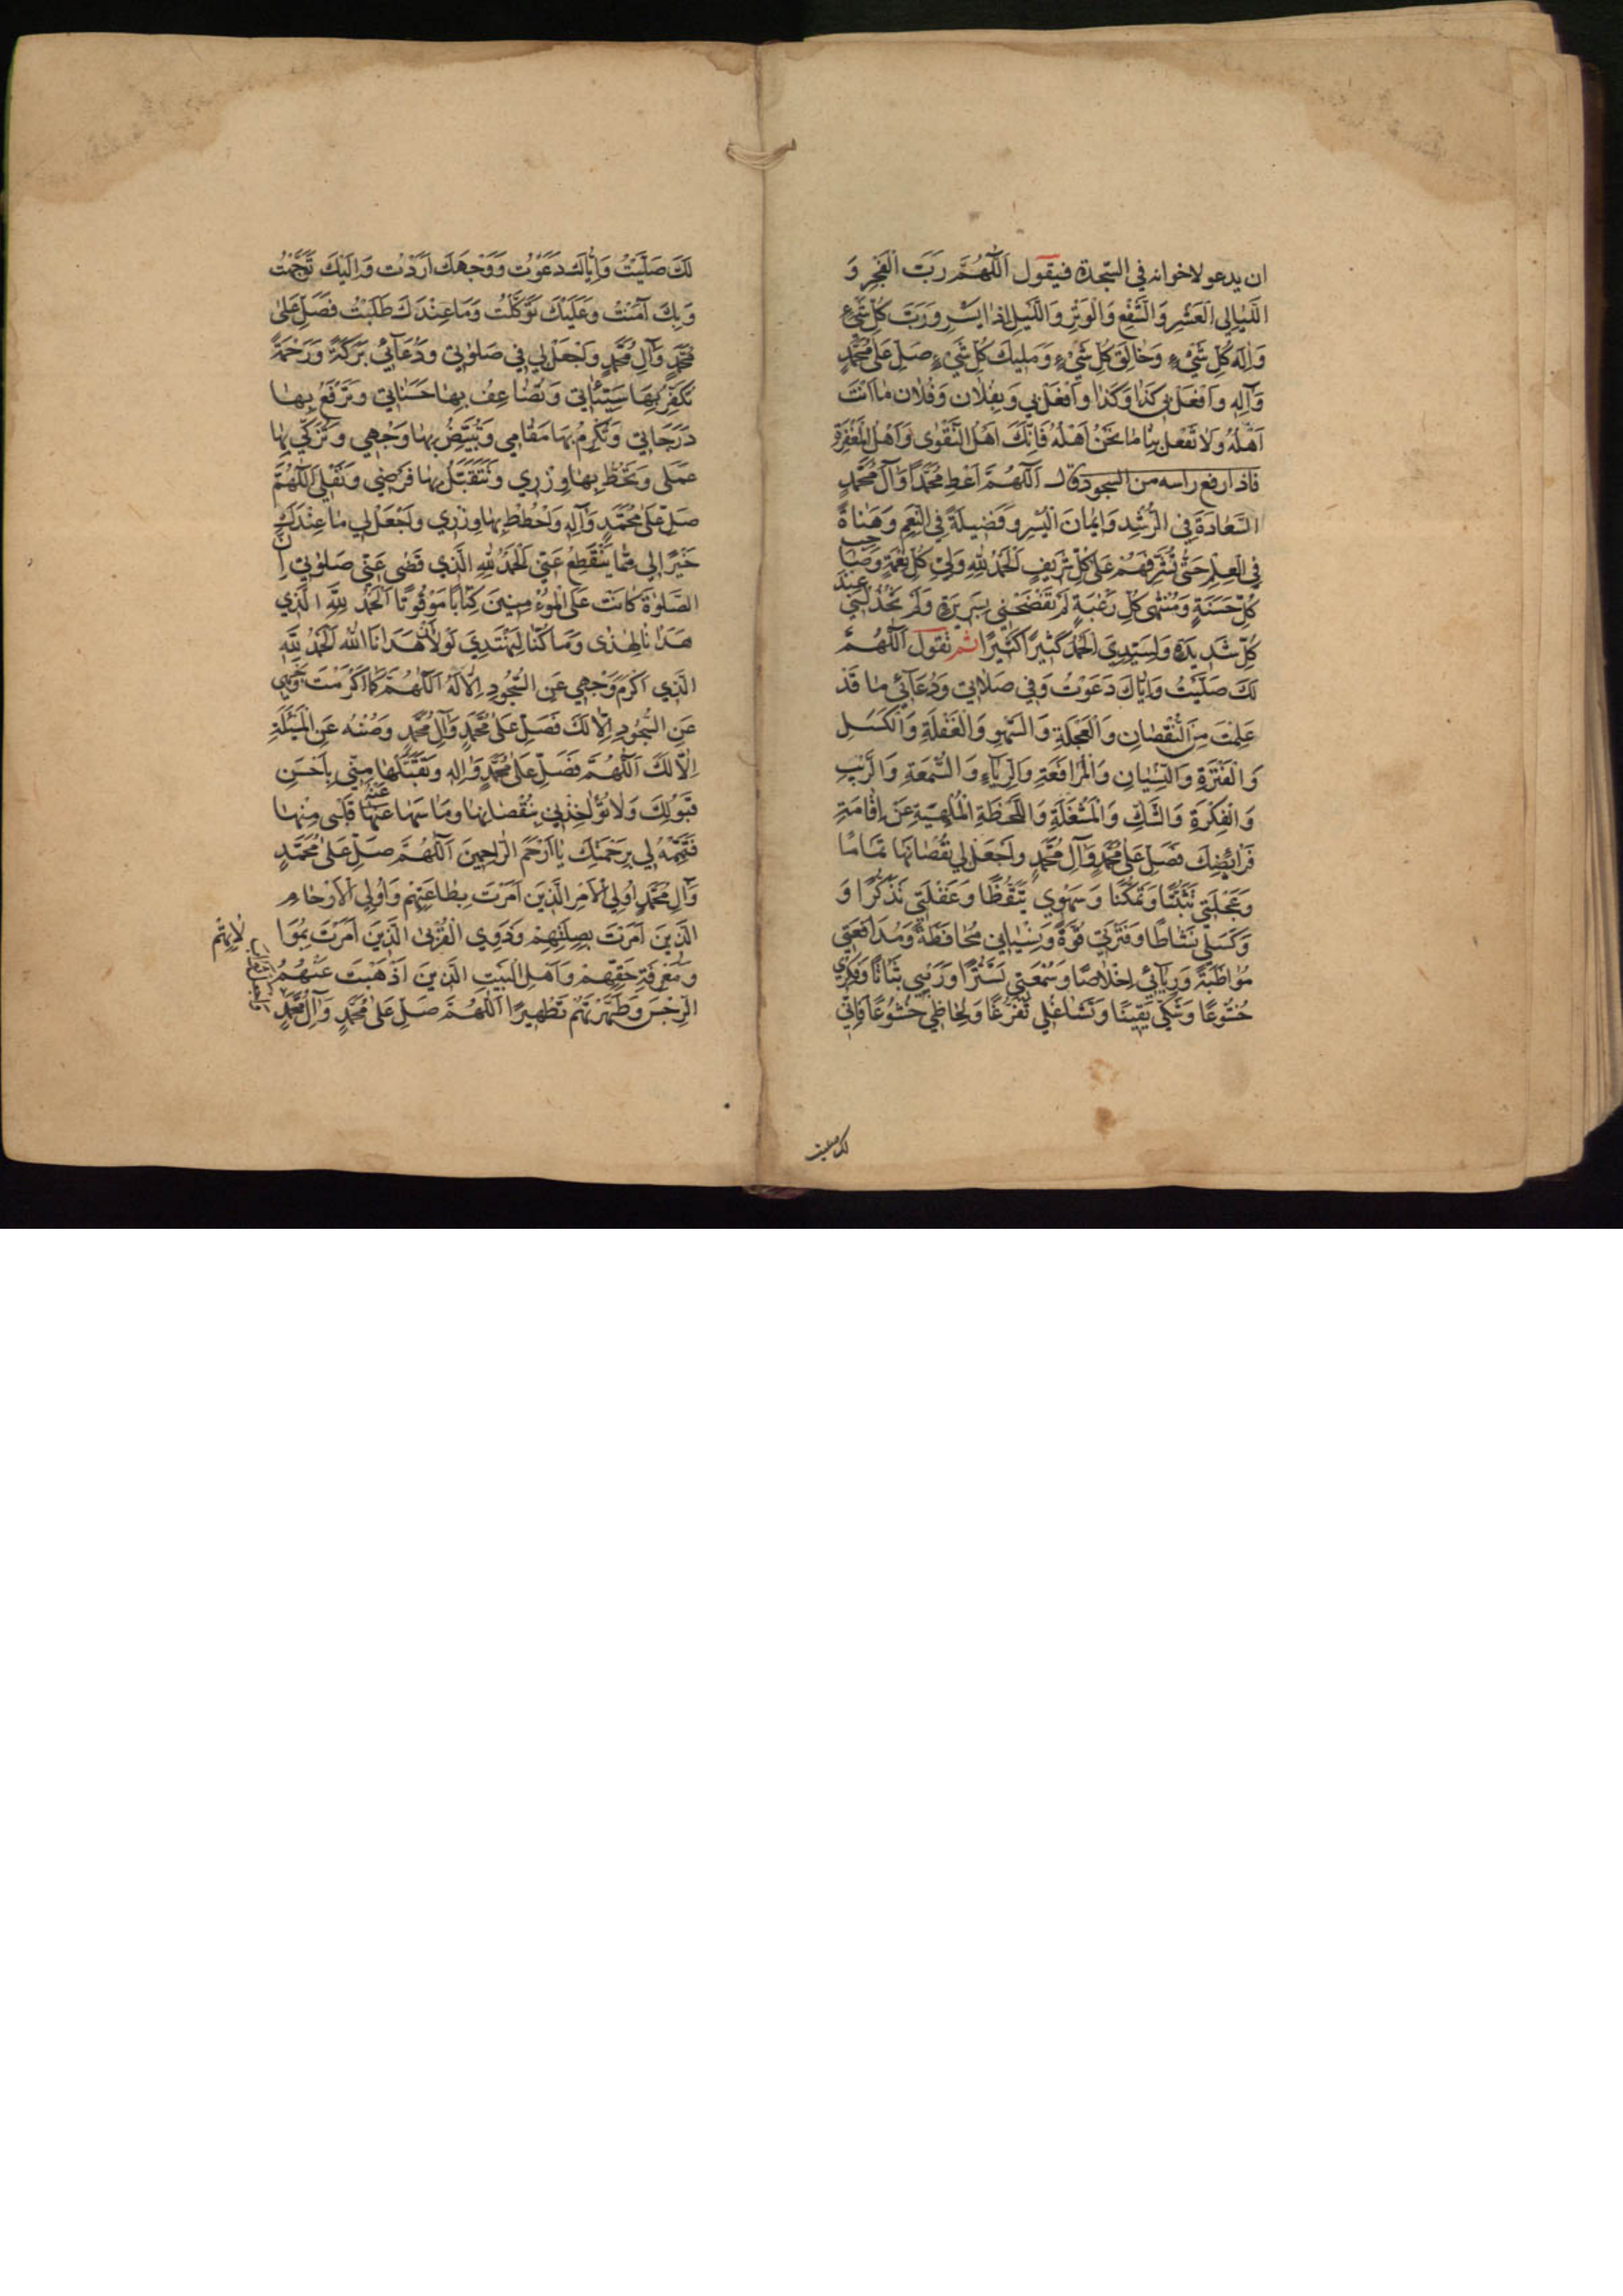 ان يدعو لاخوانه في السجدة فيقول اَللّٰهُمَّ رَبَّ الْفَجْرِ وَ
اللَّيٰالِي الْعَشْرِ وَالشَّفْعِ وَالْوَتْرِ وَاللَّيْلِ اِذٰا يَسْرِ وَرَبَّ كُلِّ شَيْءٍ
وَاِلٰهَ كُلِّ شَيْءٍ وَخٰالِقَ كُلِّ شَيْءٍ وَمَلِيكَ كُلِّ شَيْءٍ صَلِّ عَلٰى مُحَمَّدٍ
وَآلِهِ وَافْعَلْ بِي كَذٰا وَكَذٰا وَافْعَلْ بِي وَبِفُلٰانٍ وَفُلٰانٍ مٰا اَنْتَ
اَهْلُهُ وَلٰا تَفْعَلْ بِنٰا مٰا نَحْنُ اَهْلُهُ فَاِنَّكَ اَهْلُ التَّقْوٰى وَاَهْلُ الْمَغْفِرَةِ
فاذا رفع راسه من السجود قال اَللّٰهُمَّ اَعْطِ مُحَمَّدًا وَآلَ مُحَمَّدٍ
السَّعٰادَةَ فِي الرُّشْدِ وَاِيمٰانَ الْيُسْرِ وَفَضِيلَةً فِي النِّعَمِ وَهَنٰاءَةً
فِي الْعِلْمِ حَتّٰى تُشَرِّفَهُمْ عَلٰى كُلِّ شَرِيفٍ اَلْحَمْدُ لِلّٰهِ وَلِيِّ كُلِّ نِعْمَةٍ وَصٰاحِبِ
كُلِّ حَسَنَةٍ وَمُنْتَهٰى كُلِّ رَغْبَةٍ لَمْ تَفْضَحْنِي بِسَرِيرَةٍ وَلَمْ تَخْذُلْنِي عِنْدَ
كُلِّ شَدِيدَةٍ وَلِسَيِّدِي الْحَمْدُ كَثِيرًا كَثِيرًا ثم تقول اَللّٰهُمَّ
لَكَ صَلَّيْتُ وَاِيّٰاكَ دَعَوْتُ وَفِي صَلٰاتِي وَدُعٰائِي مٰا قَدْ
عَلِمْتَ مِنَ النُّقْصٰانِ وَالْعَجَلَةِ وَالسَّهْوِ وَالْغَفْلَةِ وَالْكَسَلِ
وَالْفَتْرَةِ وَالنِّسْيٰانِ وَالْمُدٰافَعَةِ وَالرِّيٰاءِ وَالسُّمْعَةِ وَالرَّيْبِ
وَالْفِكْرَةِ وَالشَّكِّ وَالْمَشْغَلَةِ وَاللَّحْظَةِ الْمُلْهِيَةِ عَنْ اِقٰامَةِ
فَرٰائِضِكَ فَصَلِّ عَلٰى مُحَمَّدٍ وَآلِ مُحَمَّدٍ وَاجْعَلْ لِي نُقْصٰانَهٰا تَمٰامًا
وَعَجَلَتِي تَثَبُّتًا وَتَمَكُّنًا وَسَهْوِي تَيَقُّظًا وَغَفْلَتِي تَذَكُّرًا وَ
وَكَسَلِي نَشٰاطًا وَفَتْرَتِي قُوَّةً وَنِسْيٰانِي مُحٰافَظَةً وَمُدٰافَعَتِي
مُوٰاظَبَةً وَرِيٰائِي اِخْلٰاصًا وَسُمْعَتِي تَسَتُّرًا وَرَيْبِي ثَبٰاتًا وَفِكْرِي
خُشُوعًا وَشَكِّي يَقِينًا وَتَشٰاغُلِي تَفَرُّغًا وَلِحٰاظِي خُشُوعًا فَاِنِّي
لك صليت
لَكَ صَلَّيْتُ وَاِيّٰاكَ دَعَوْتُ وَوَجْهَكَ اَرَدْتُ وَاِلَيْكَ تَوَجَّهْتُ
وَبِكَ آمَنْتُ وَعَلَيْكَ تَوَكَّلْتُ وَمٰا عِنْدَكَ طَلَبْتُ فَصَلِّ عَلٰى
مُحَمَّدٍ وَآلِ مُحَمَّدٍ وَاجْعَلْ لِي فِي صَلوٰتِي وَدُعٰائِي بَرَكَةً وَرَحْمَةً
تُكَفِّرُ بِهَا سَيِّئٰاتِي وَتُضٰاعِفُ بِهٰا حَسَنٰاتِي وَتَرْفَعُ بِهٰا
دَرَجٰاتِي وَتُكْرِمُ بِهٰا مَقٰامِي وَتُبَيِّضُ بِهٰا وَجْهِي وَتُزَكِّي بِهٰا
عَمَلِي وَتَحُطُّ بِهٰا وِزْرِي وَتَتَقَبَّلُ بِهٰا فَرْضِي وَنَفْلِي اَللّٰهُمَّ
صَلِّ عَلٰى مُحَمَّدٍ وَآلِهِ وَاحْطُطْ بِهٰا وِزْرِي وَاجْعَلْ لِي مٰا عِنْدَكَ
خَيْرًا لِي مِمّٰا يَنْقَطِعُ عَنِّي اَلْحَمْدُ لِلّٰهِ الَّذِي قَضٰى عَنِّي صَلوٰتِي اِنَّ
الصَّلوٰةَ كٰانَتْ عَلَى الْمُؤْمِنِينَ كِتٰابًا مَوْقُوتًا اَلْحَمْدُ لِلّٰهِ الَّذِي
هَدٰانٰا لِهٰذٰا وَمٰا كُنّٰا لِنَهْتَدِيَ لَوْلٰا اَنْ هَدٰانَا اللّٰهُ اَلْحَمْدُ لِلّٰهِ
الَّذِي اَكْرَمَ وَجْهِي عَنِ السُّجُودِ اِلّٰا لَهُ اَللّٰهُمَّ كَمٰا اَكْرَمْتَ وَجْهِي
عَنِ السُّجُودِ اِلّٰا لَكَ فَصَلِّ عَلٰى مُحَمَّدٍ وَآلِ مُحَمَّدٍ وَصُنْهُ عَنِ الْمَسْئَلَةِ
اِلّٰا لَكَ اَللّٰهُمَّ فَصَلِّ عَلٰى مُحَمَّدٍ وَآلِهِ وَتَقَبَّلْهٰا مِنِّي بِاَحْسَنِ
قَبُولِكَ وَلٰا تُؤٰاخِذْنِي بِنُقْصٰانِهٰا وَمٰا سَهٰا عَنْهُ قَلْبِي مِنْهٰا
فَتَمِّمْهُ لِي بِرَحْمَتِكَ يٰا اَرْحَمَ الرّٰاحِمِينَ اَللّٰهُمَّ صَلِّ عَلٰى مُحَمَّدٍ
وَآلِ مُحَمَّدٍ اُولِي الْاَمْرِ الَّذِينَ اَمَرْتَ بِطٰاعَتِهِمْ وَاُولِي الْاَرْحٰامِ
الَّذِينَ اَمَرْتَ بِصِلَتِهِمْ وَذَوِي الْقُرْبٰى الَّذِينَ اَمَرْتَ بِمَوَا لٰاتِهِمْ
وَمَعْرِفَةِ حَقِّهِمْ وَاَهْلِ الْبَيْتِ الَّذِينَ اَذْهَبْتَ عَنْهُمُ
الرِّجْسَ وَطَهَّرْتَهُمْ تَطْهِيرًا اَللّٰهُمَّ صَلِّ عَلٰى مُحَمَّدٍ وَآلِ مُحَمَّدٍ